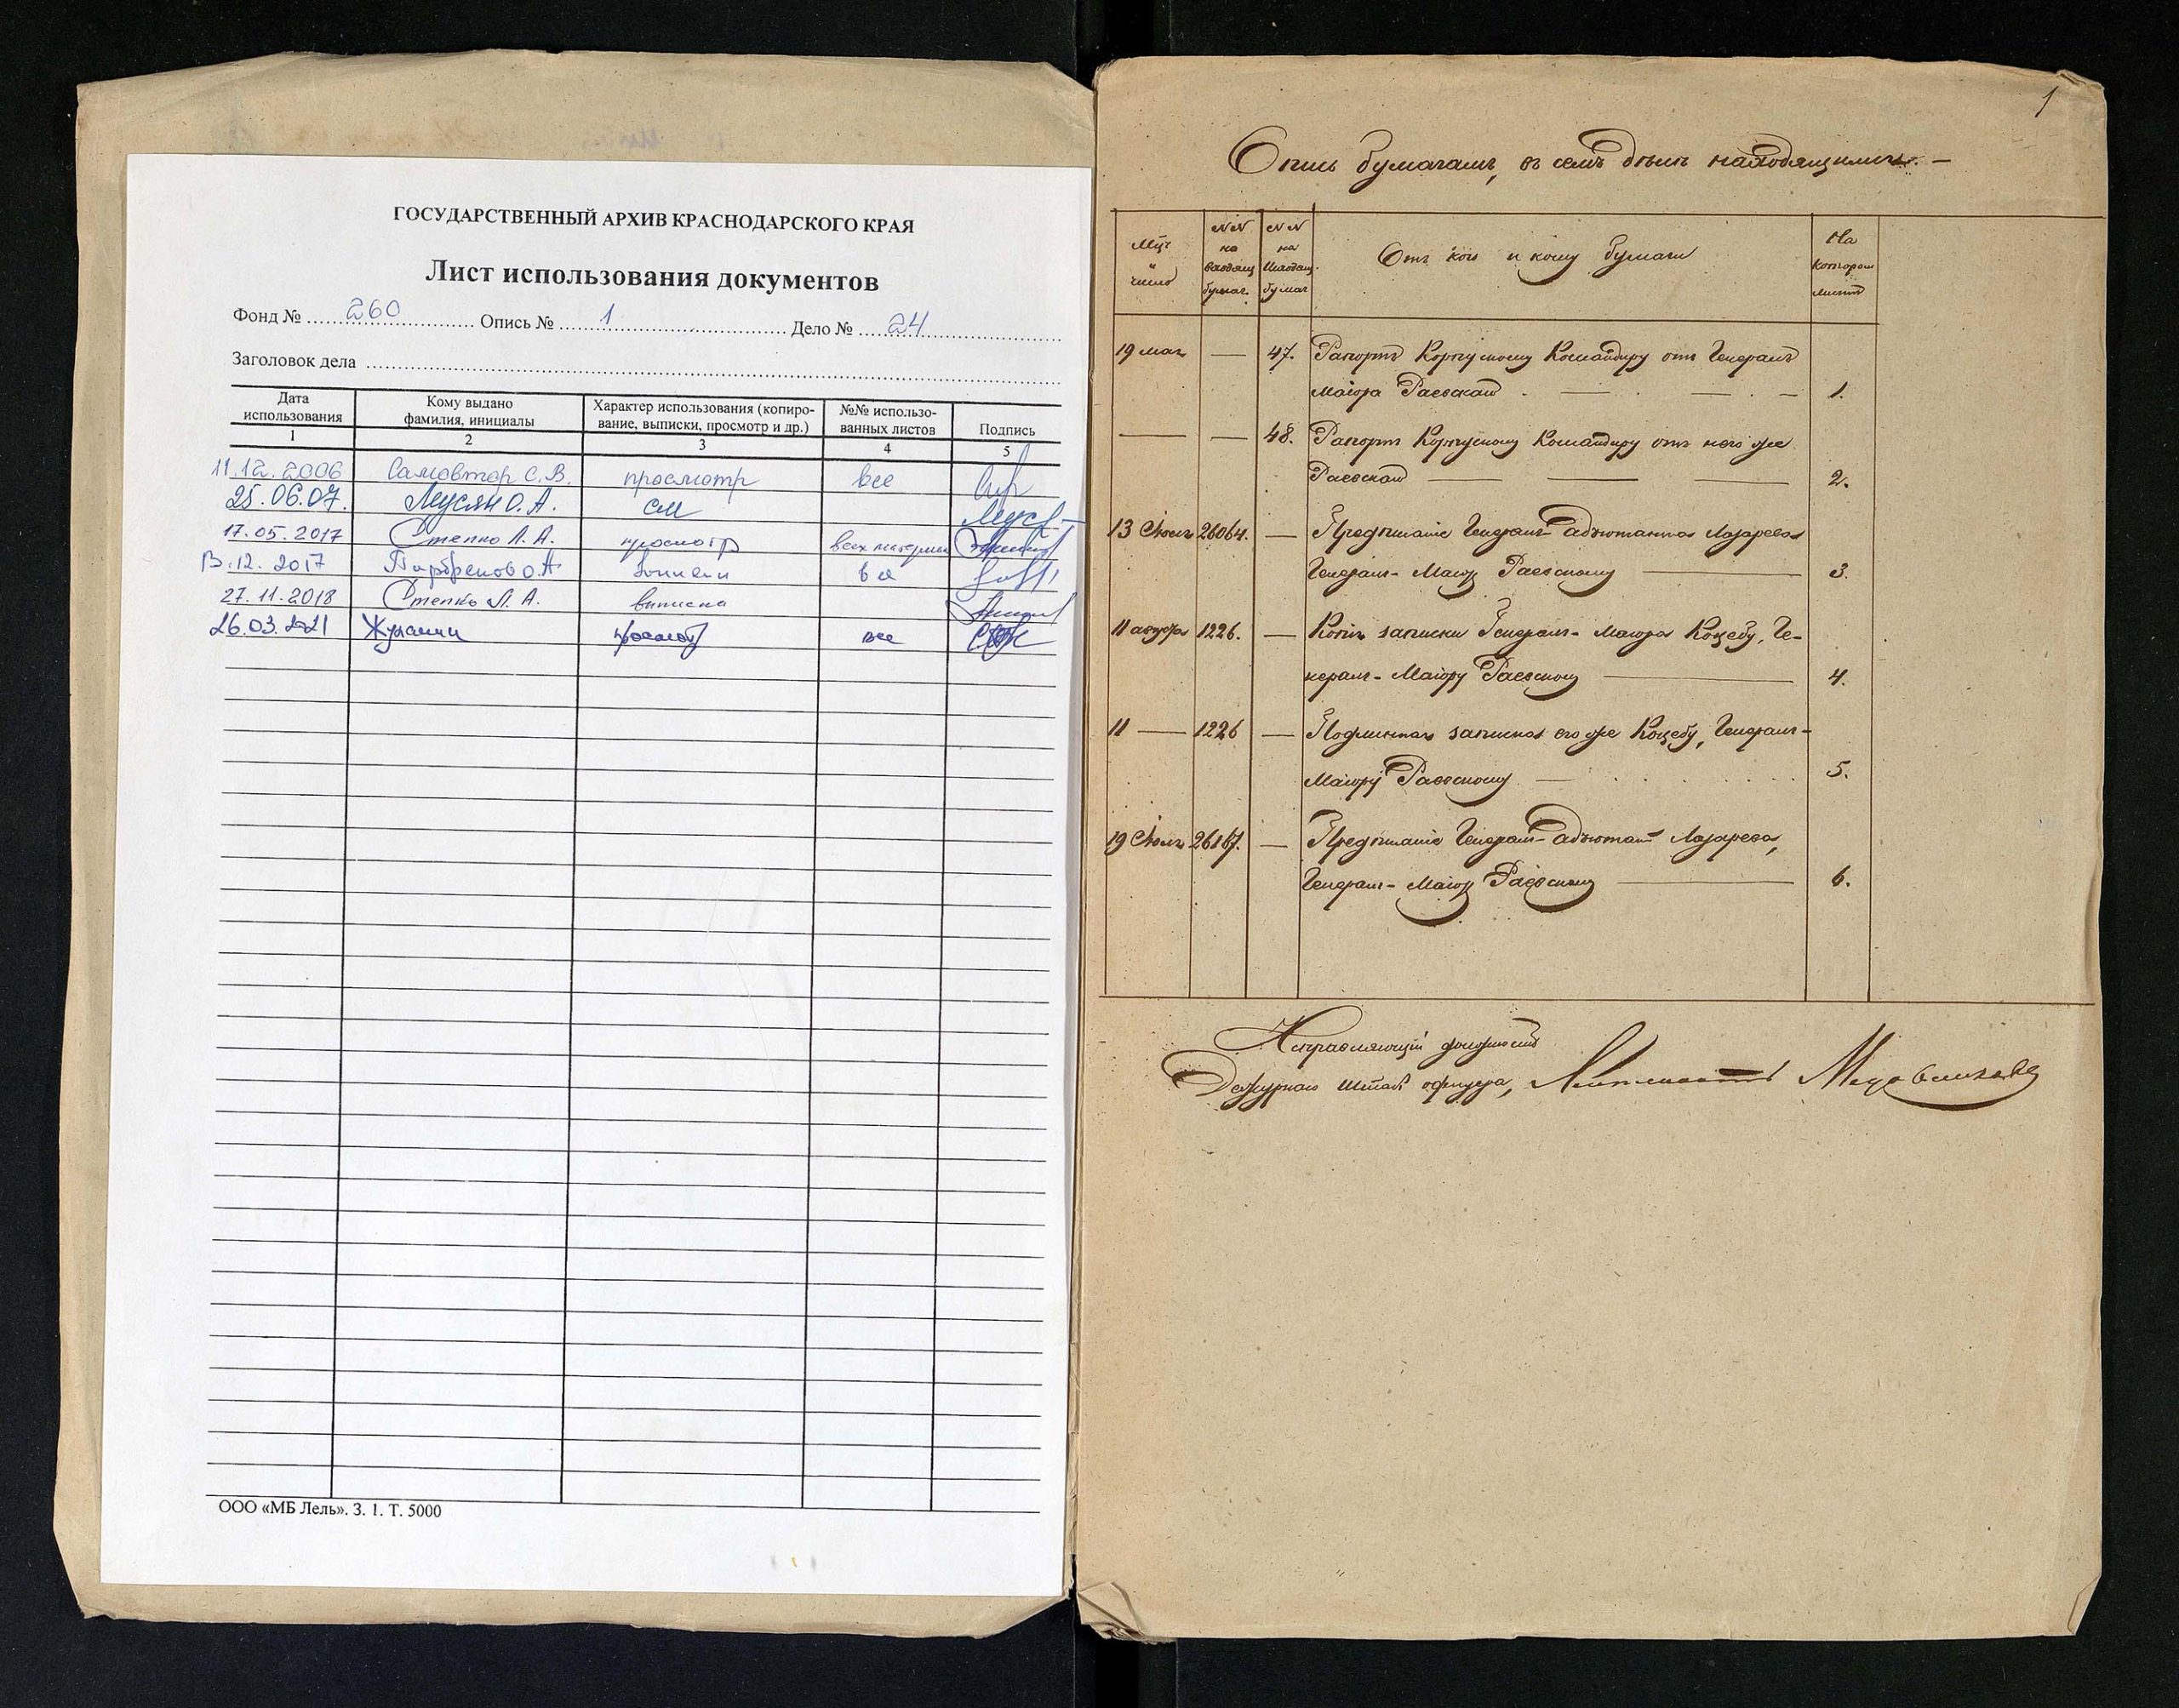 ГОСУДАРСТВЕННЫЙ АРХИВ КРАСНОДАРСКОГО КРАЯ
Лист использования документов
Фонд № 260 Опись № 1 Дело № 24
Заголовок дела
Дата использования | Кому выдано фамилия, инициалы | Характер использования (копирование, выписки, просмотр и др.) | №№ использованных листов | Подпись
1 2 3 4 5
11.12.2006 Самовтор С.В. просмотр все
25.06.07. Мусян О.А. см
17.05.2017 Степко Л.А. просмотр всех
12.2017 О.А. все
27.11.2018 Степко Л.А. выписка
26.03.2021 просмотр все
ООО «МБ Лель». З. 1. Т. 5000
1
Опись бумагамъ, въ семъ дѣлѣ находящимся. —
Мцъ и число | NN на входящ бумаг. | NN на исходящ. бумаг | Отъ кого и кому бумаги | На котором листѣ
19 мая — 47. Рапортъ Корпусному Командиру отъ Генералъ
Маіора Раевскаго 1.
— — 48. Рапортъ Корпусному Командиру отъ него же
Раевскаго 2.
13 Іюля 26064. — Предписаніе Генералъ-Адъютанта Лазарева
Генералъ-Маіору Раевскому 3.
11 августа 1226. — Копія записки Генералъ-Маіора Коцебу, Ге-
нералъ-Маіору Раевскому 4.
11 — 1226 — Подлинная записка его же Коцебу, Генералъ-
Маіору Раевскому 5.
19 Іюля 26187. — Предписаніе Генералъ-Адъютанта Лазарева,
Генералъ-Маіору Раевскому 6.
Исправляющій должность
Дежурнаго штабъ офицера,